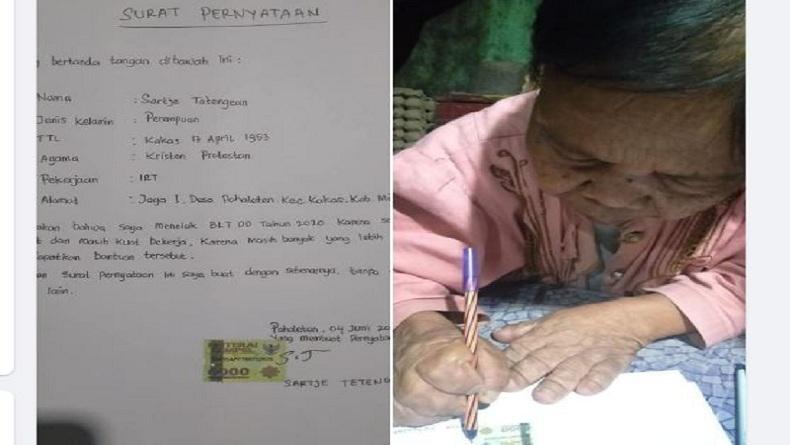 SURAT PERNYATAAN
bertanda tangan dibawah ini :
Nama : Sartje Tatengean
Jenis kelamin : Perempuan
TTL : Kakas 17 April 1953
Agama : Kristen Protestan
Pekerjaan : IRT
Alamat : Jaga I. Desa Pahaleten Kec. Kakas. Kab. Mi
akan bahwa saya menolak BLT DD Tahun 2020 karena s
t dan masih kuat bekerja, karena masih banyak yang lebih
dapatkan Bantuan tersebut.
an Surat Pernyataan ini saya buat dengan sebenarnya, tanpa
lain.
Pahaleten, 04 Juni 20
Yang membuat Pernyata
TERAI
MPEL
6000
S.T
SARTJE TETENG